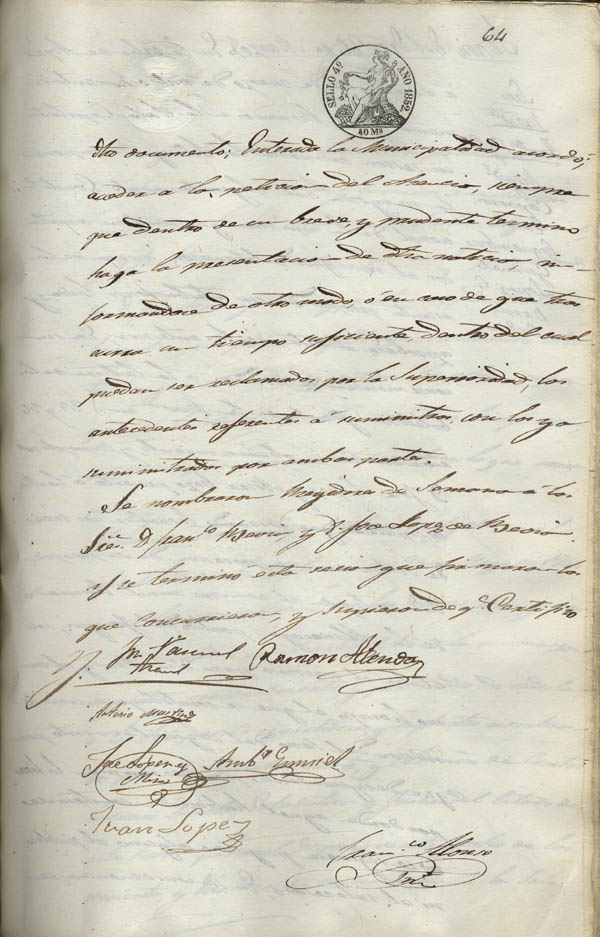 64
SELLO 4º AÑO 1852.
40 Ms
dho documento; Enterada la Municipalidad acordó,
acceder a la peticion del Arencio, siempre
que dentro de un breve, y prudente termino
haga la presentacion de dha noticia, in-
formandose de otro modo, ó en caso de que tras
curra un tiempo suficiente, dentro del cual
puedan ser reclamados por la Superioridad, los
antecedentes referentes á suministros, con los ya
suministrados por ambas partes.
Se nombraron Regidores de Semana á los
Sres. D. Franco y D. Jose Lopez de
y se termino esta sesion que firmaron los
que concurrieron, y supieron de qe Certifico
Pascual
Ramon Alenda
Antonio
Jose Lopez y
Mira
Ambo
Juan Lopez
Franco Alonso